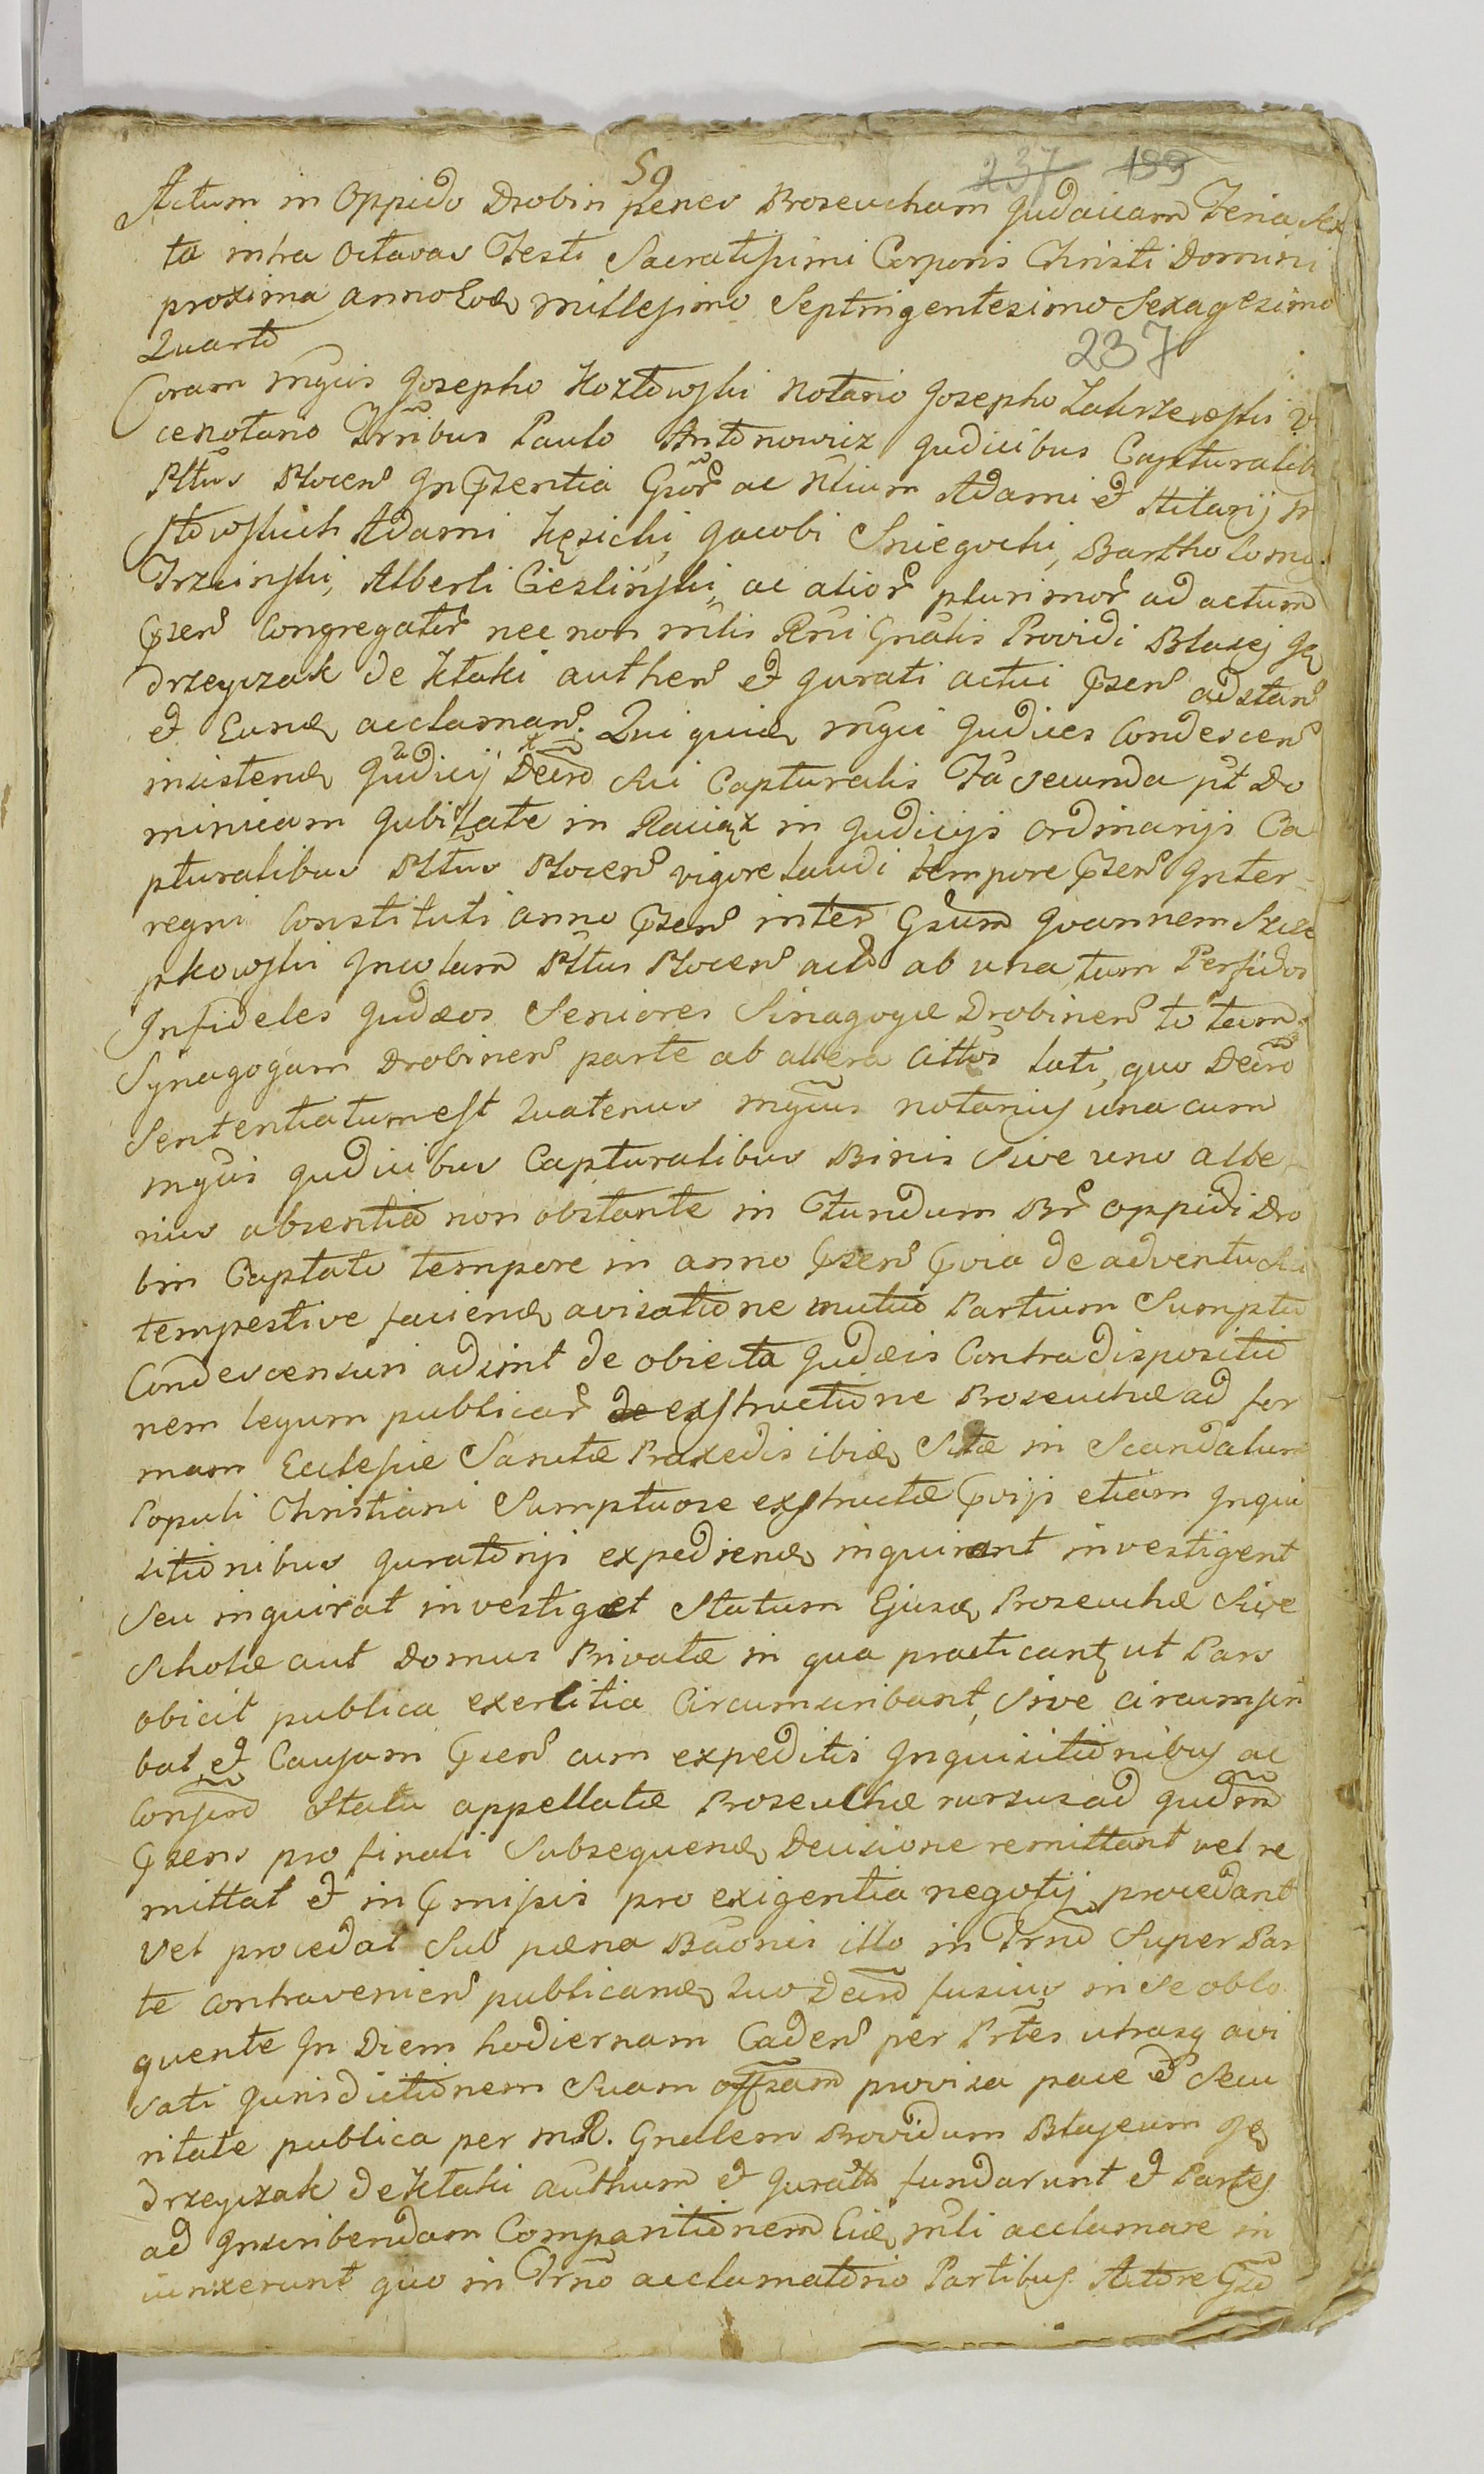 59
237 199
Actum in Oppido Drobin penes Proseucham Judaicam Feria Sex
ta intra Octavas Festi Sacratissimi Corporis Christi Domini
proxima anno millesimo Septingentesimo Sexagesimo
Quarto
237
Coram mgcis Josepho Kozłowski Notario Josepho Zakrzewski Vi
cenotario Paulo Antonowicz Judicibus Capturalib
Pltus Plocen In Pzentia Gsor ac Nlium Adami et Hilarij
Adami Kęsicki, Jacobi Sniegocki, Bartholomei
Trzcinski, Alberti Cieslinski, ac alior plurimor ad actum
Pzen Congregator nec non mtis Rni Gnalis Providi Blasej Ję
drzeyczak de Kłaki authen et Jurati actui Pzen adstan
et acclaman. Qui quid mgci Judices Condescen
insisten Judicij Decro Sui Capturalis Fa secunda pt Do
minicam Jubilate in Raciąż in Judicijs Ordinarijs Ca
pturalibus Pltus Plocen vigore Laudi tempore Pzen Inter-
regni Constituti anno Pzen inter Gsum Joannem Szcze
pkowski Incolam Pltus Plocen act ab una, tum Perfidos
Infideles Judæos Seniores Sinagogæ Drobinen totam
Synagogam Drobinen parte ab altera Cittos lati, quo Decro
Sententiatum est Quatenus mgcus notarius una cum
mgcis Judicibus Capturalibus Binis Sive uno alte
rius absentia non obstante in Fundum Br oppidi Dro
bin Captato tempore in anno Pzen Pvia de adventu Sui
tempestive facien avisatione mutuo Partium Sumptu
Condescensuri adsint de obiecta Judæis Contra dispositio
nem legum publicar de exstructione Proseuchæ ad for
mam Ecclesiæ Sanctæ Praxedis ibid Sitæ in Scandalum
Populi Christiani Sumptuose exstructæ Pvijs etiam Inqui
sitionibus Juratorijs expedien inquirant investigent
Seu inquirat investiget Statum Ejusd Proseuchæ Sive
Scholæ aut Domus Privatæ in qua practicant ut Pars
obicit publica exercitia Circumscribant, Sive circumscri
bat et Causam Pzen cum expeditis Inquisitionibus ac
Conserto Statu appellatæ Proseuchæ rursus ad Judm
Pzens pro finali Subsequen Decisione remittant vel re
mittat et in Pmissis pro exigentia negotij procedant
Vel procedat Sub pæna Baonis illo in Trno Super Par
te contravenien publican Quo Decro fusius in Se oblo
quente In Diem hodiernam Caden per Prtes utrasq avi
sati Jurisdictionem Suam offsam provisa pace et Secu
ritate publica per mR. Gnalem Providum Blaseum Ję
drzeyczak de Kłaki authum et Jurato fundarunt et Partes
ad Inscribendam Comparitionem mti acclamare in
iunxerunt quo in Trno acclamatorio Partibus Actore Gso